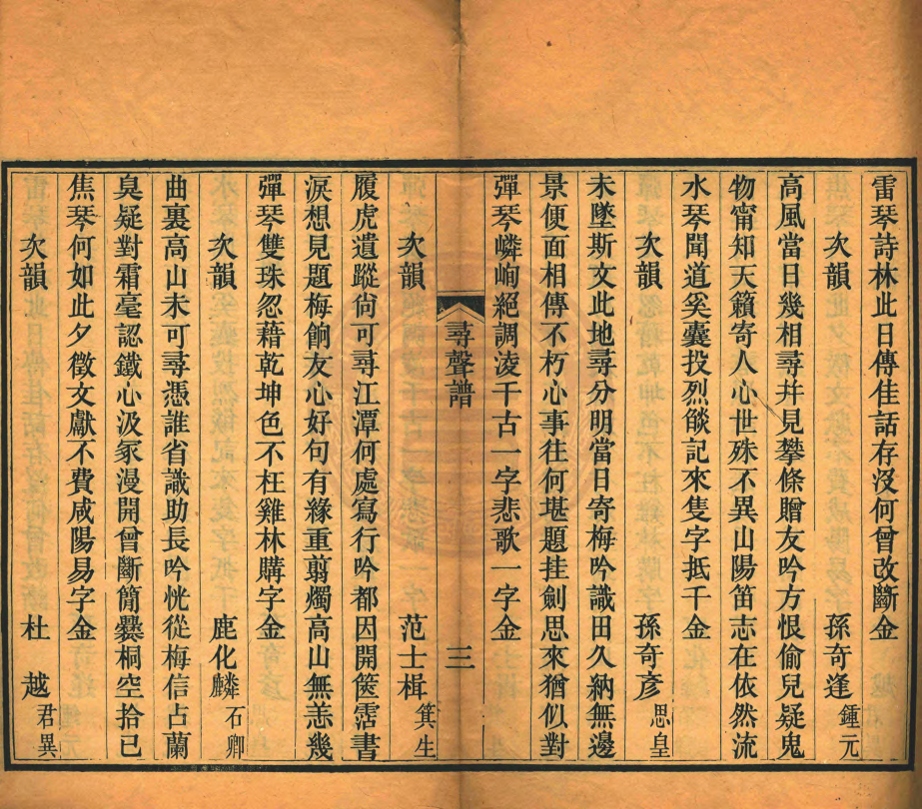 雷琴詩林此日傳佳話存沒何曾改斷金
次韻 孫奇逢鍾元
高風當日幾相尋幷見攀條贈友吟方恨偷兒疑鬼
物甯知天籟寄人心世殊不異山陽笛志在依然流
水琴聞道奚囊投烈燄記來隻字抵千金
次韻 孫奇彥思皇
未墜斯文此地尋分明當日寄梅吟識田久納無邊
景便面相傳不朽心事往何堪題挂劍思來猶似對
彈琴嶙峋絕調凌千古一字悲歌一字金
尋聲譜 三
次韻 范士楫箕生
履虎遺蹤尙可尋江潭何處寫行吟都因開篋霑書
淚想見題梅餉友心好句有緣重翦燭高山無恙幾
彈琴雙珠忽藉乾坤色不枉雞林購字金
次韻 鹿化麟石卿
曲裏高山未可尋憑誰省識助長吟恍從梅信占蘭
臭疑對霜毫認鐵心汲冢漫開曾斷簡爨桐空拾已
焦琴何如此夕徵文獻不費咸陽易字金
次韻 杜越君異